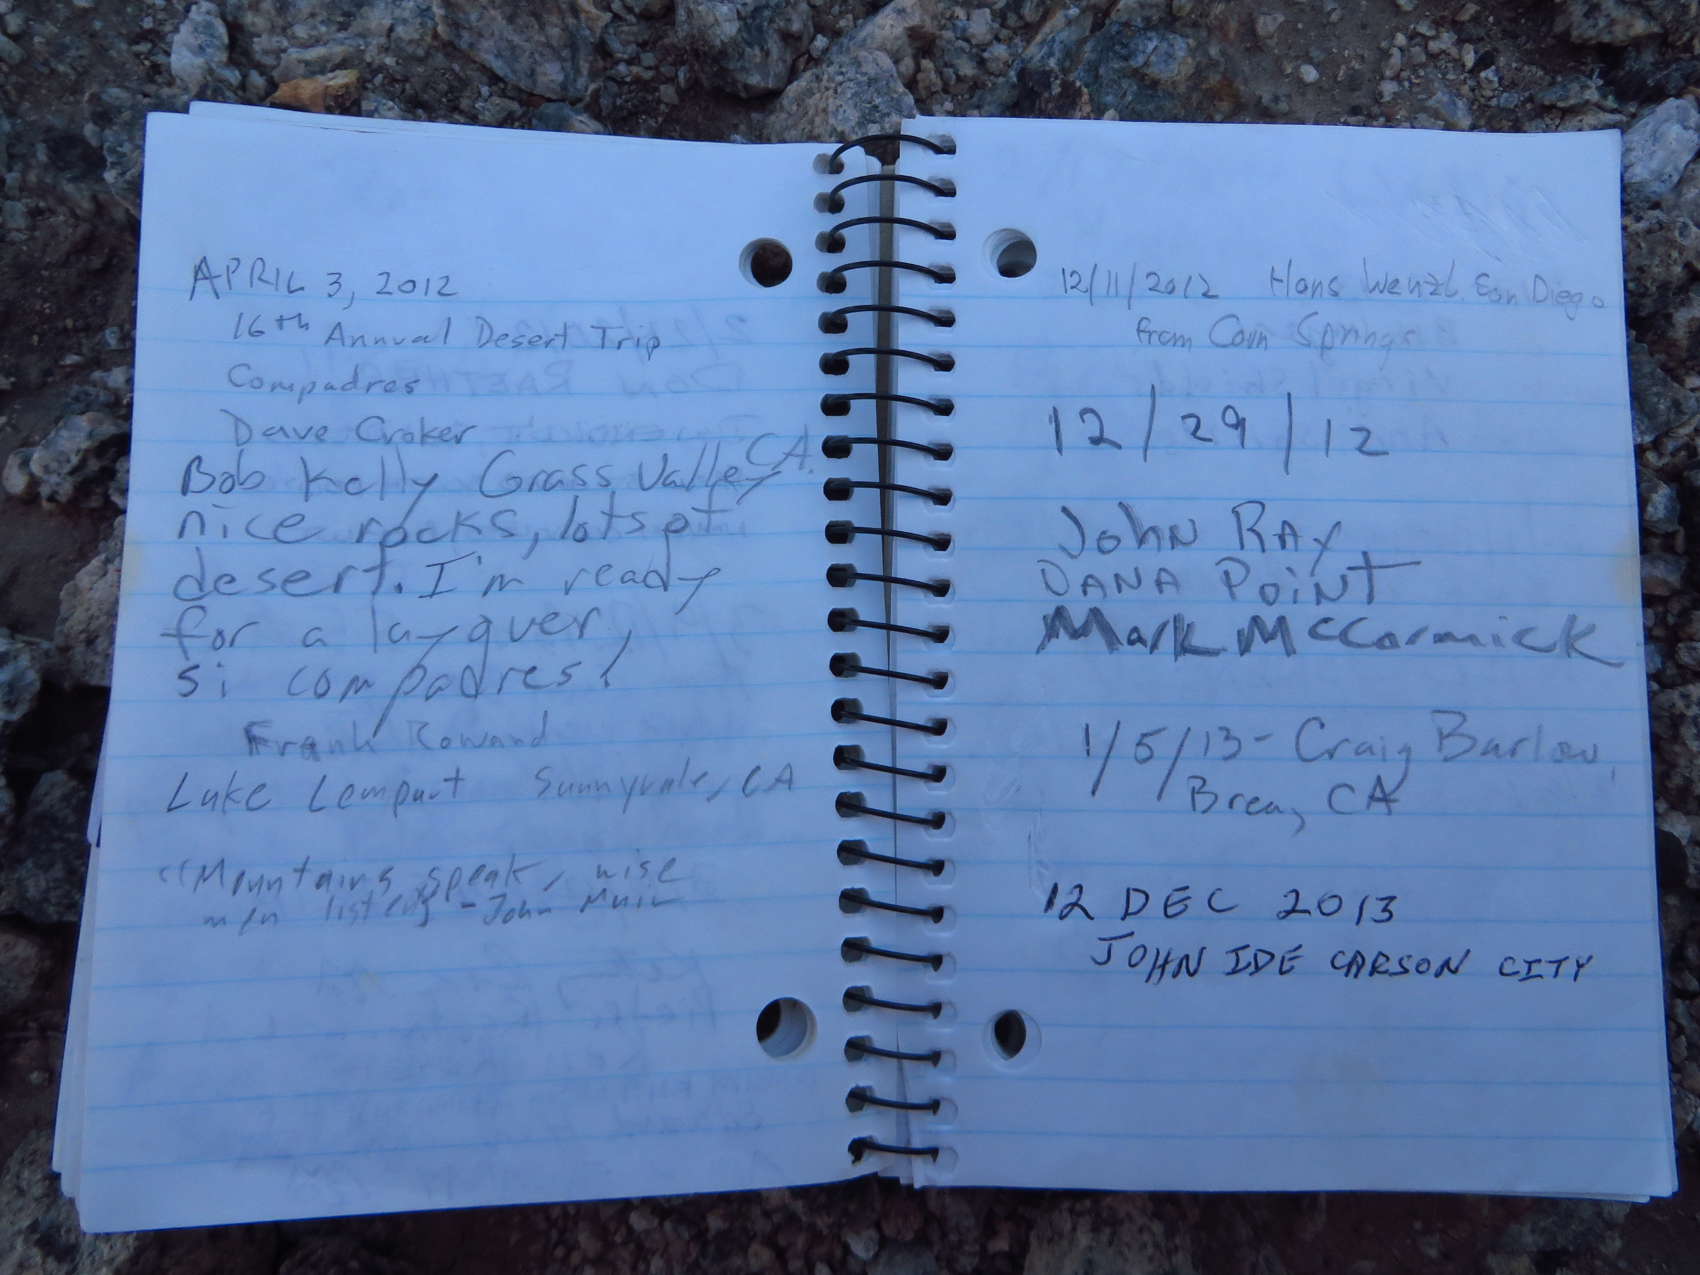 APRIL 3, 2012
16th Annual Desert Trip
Compadres
Dave Croker
Bob Kelly Grass Valley CA.
nice rocks, lots of
desert. I'm ready
for a
si compadres!
Frank
Luke Lempart Sunnyvale, CA
"Mountains speak, wise
men listen" - John Muir
12/11/2012 Hans Wenzl San Diego
from Corn Springs
12/29/12
John Ray
Dana Point
Mark McCormick
1/5/13 - Craig Barlow,
Brea, CA
12 DEC 2013
JOHN IDE CARSON CITY